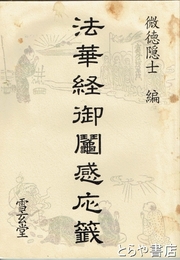 微徳隠士 編
法華経御鬮感応籤
雪玄堂
とらや書店